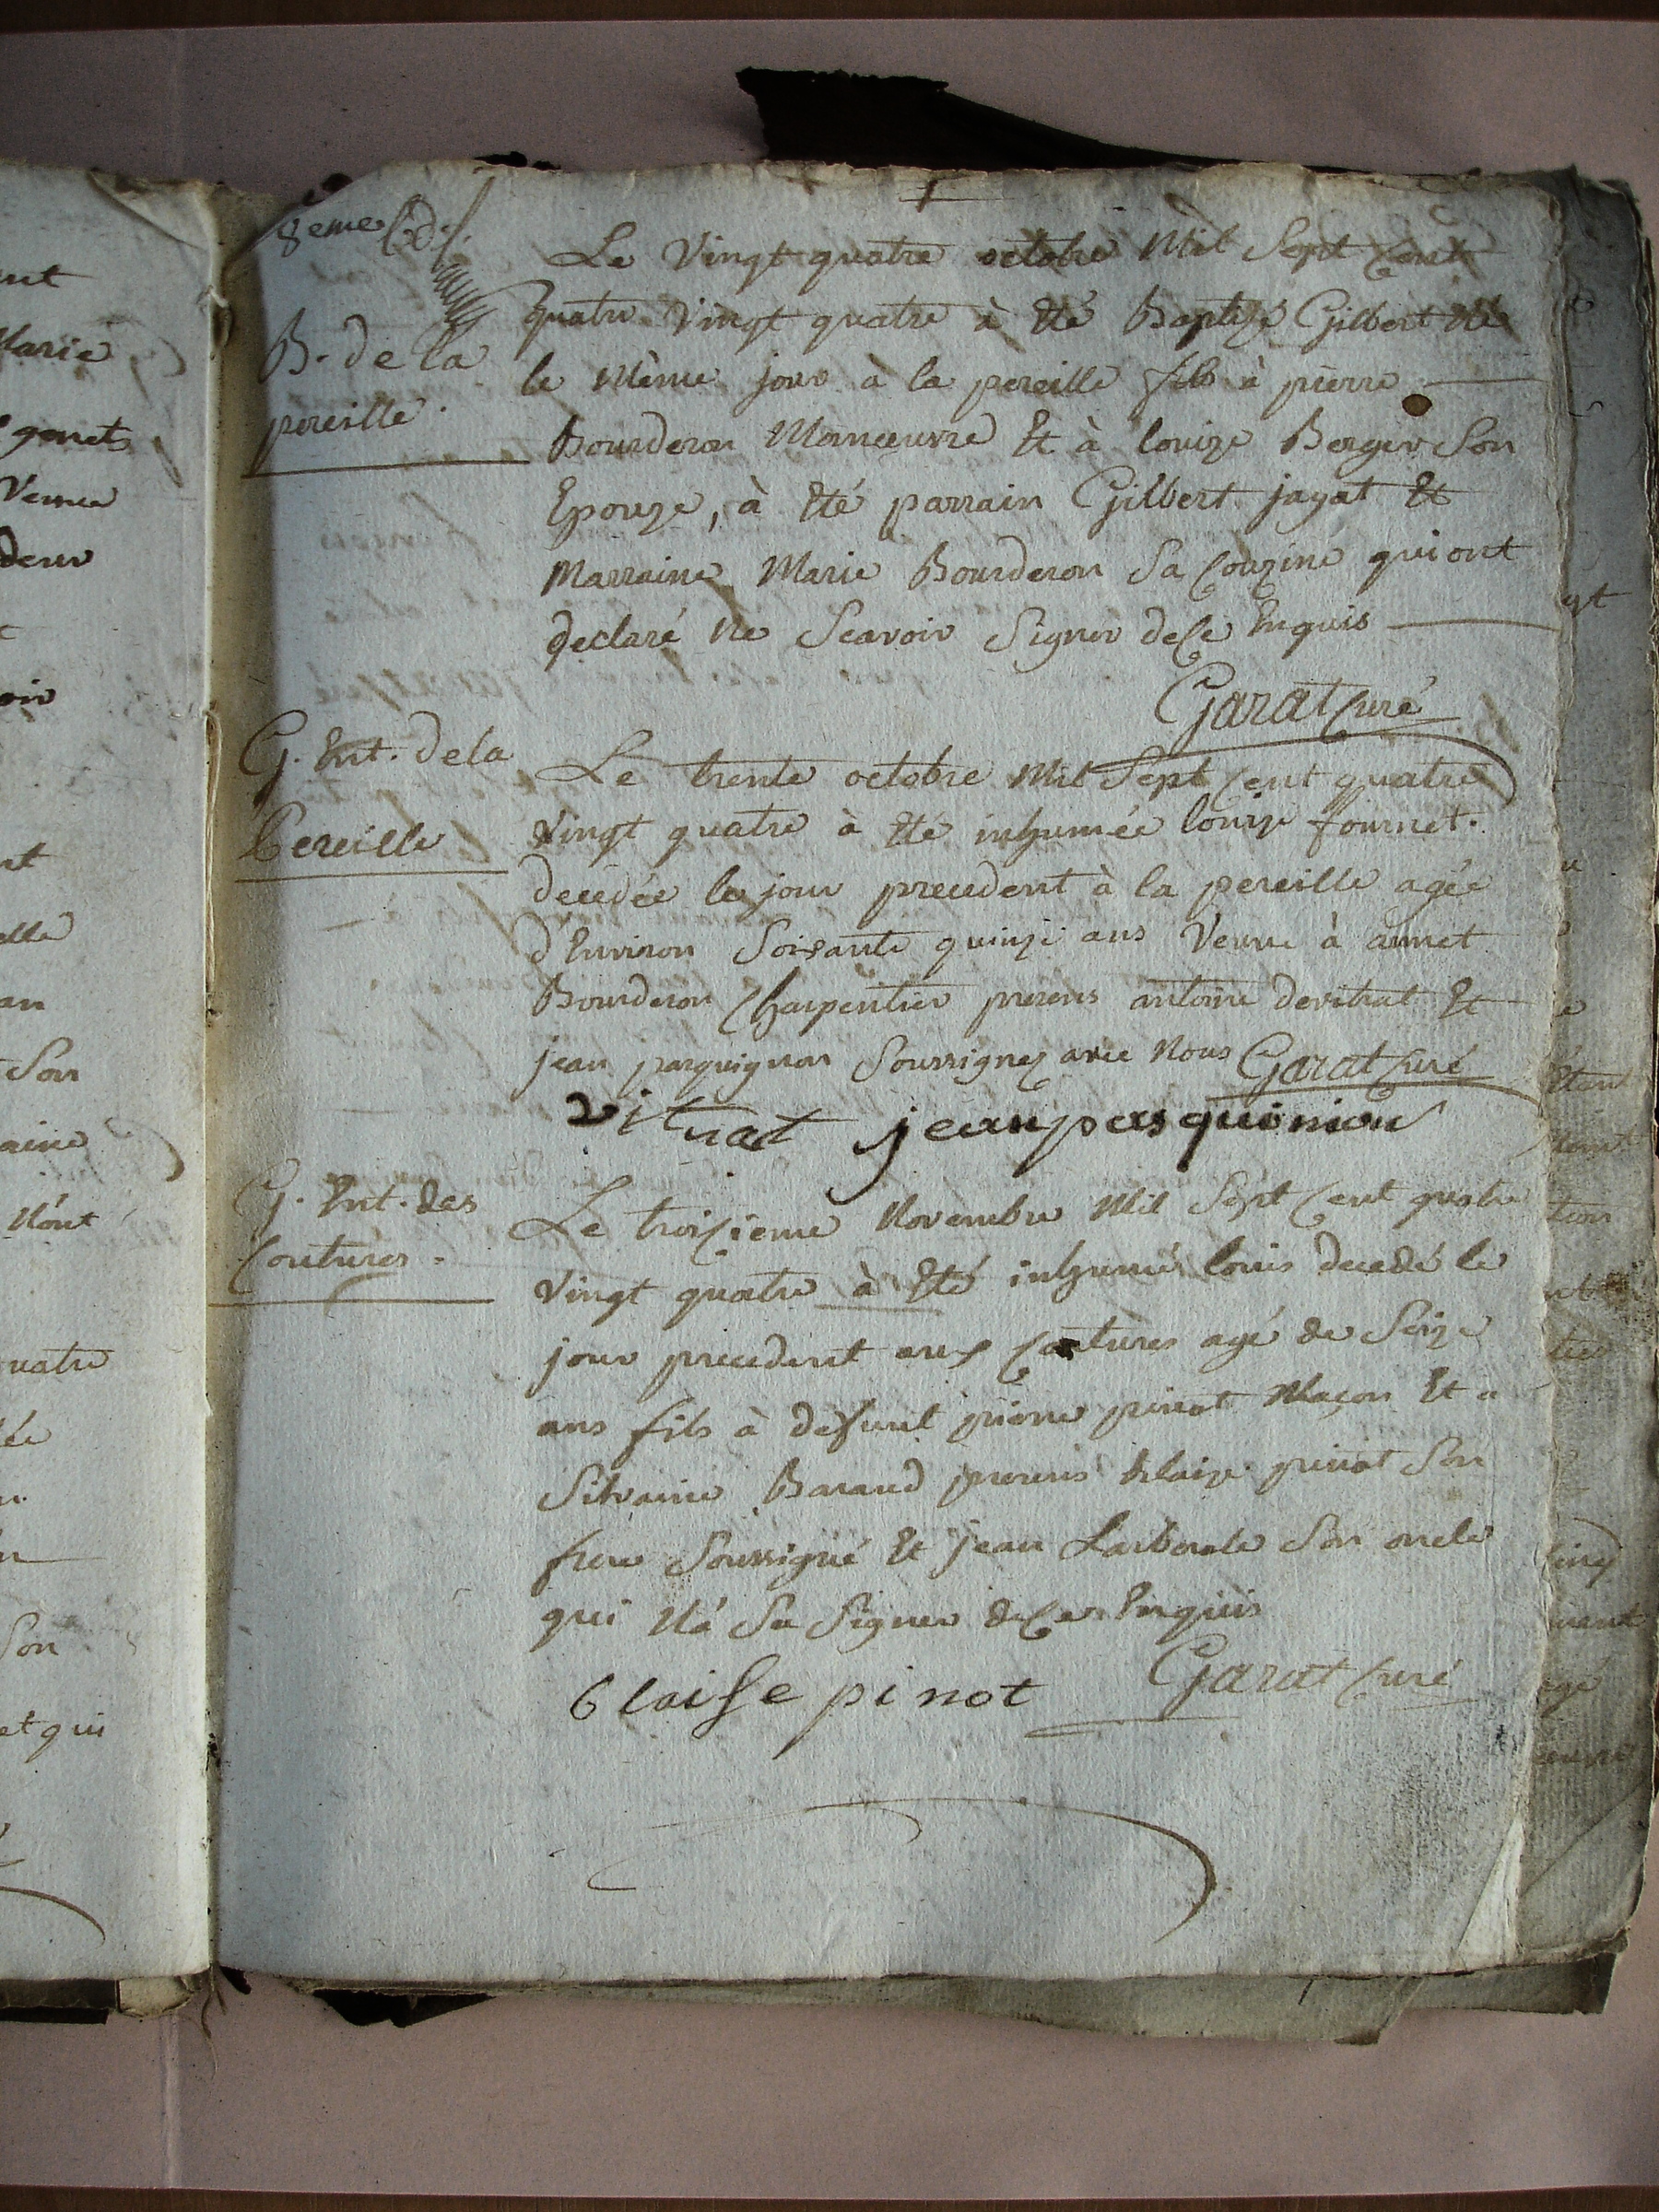 8eme
Le Vingt quatre octobre Mil Sept Cent
quatre Vingt quatre à Eté Baptizé Gilbert Né
B. de la
pereille.
le Même jour à la pereille fils à pierre
Bourderon Manœuvre Et à louize Berger Son
Epouze, à Eté parrain Gilbert jayat Et
Marraine Marie Bourderon Sa Couzine qui ont
declaré Ne Scavoir Signer de Ce Enquis
Garat Curé
G. Ent. de la
Pereille
Le trente octobre Mil Sept Cent quatre
Vingt quatre à Eté inhumée louize fournet.
decédée le jour precedent à la pereille agée
d'Environ Soixante quinze ans Veuve à annet
Bourderon Charpentier presens antoine devitrat Et
jean pasquignon Soussignez avec Nous Garat Curé
vitrat jean pasquinion
G. Ent. des
Coutures.
Le troizieme Novembre Mil Sept Cent quatre
Vingt quatre à Eté inhumé louis decedé le
jour precedent aux Coutures agé de Seize
ans fils à defunt pierre pinot Maçon Et a
Silvaine Baraud presens blaize pinot Son
frere Soussigné Et jean Son oncle
qui N'à Su Signer de Ces Enquis
blaise pinot Garat Curé